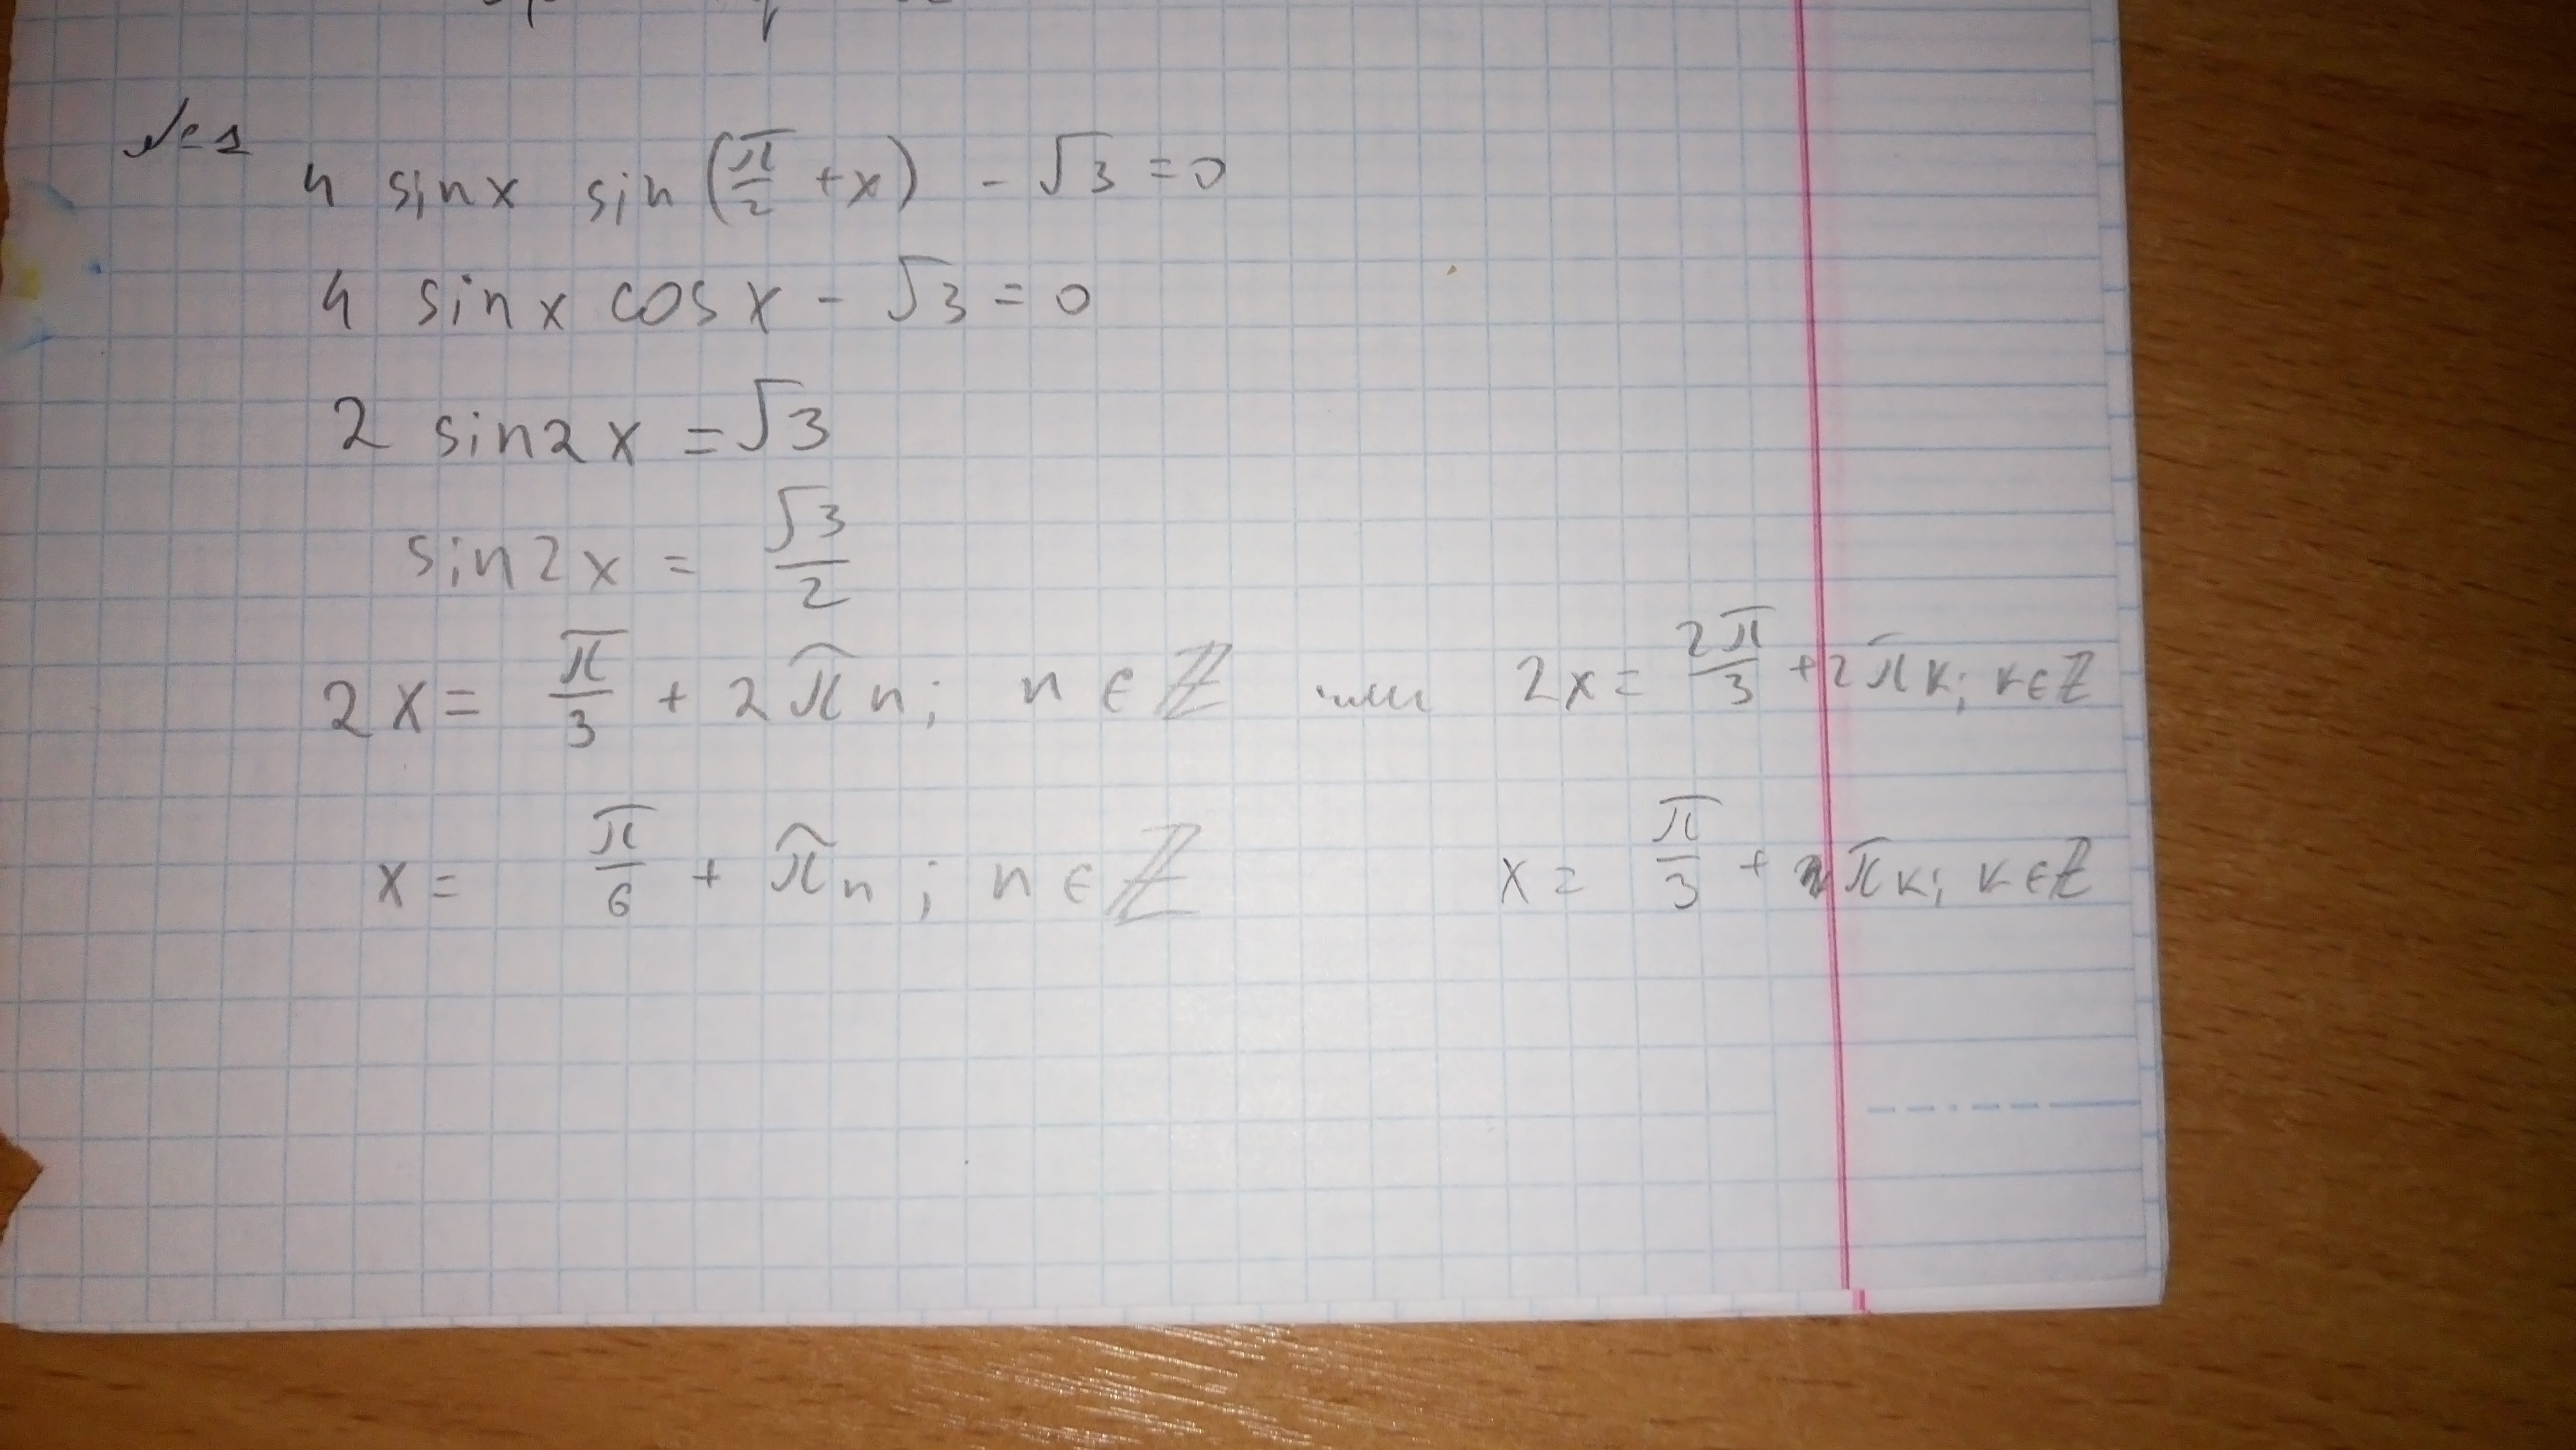 №1
4 sinx sin(π/2 + x) - √3 = 0
4 sinx cosx - √3 = 0
2 sin2x = √3
sin2x = √3/2
2x = π/3 + 2πn; n ∈ ℤ или 2x = 2π/3 + 2πк; к ∈ ℤ
x = π/6 + πn; n ∈ ℤ x = π/3 + πк; к ∈ ℤ